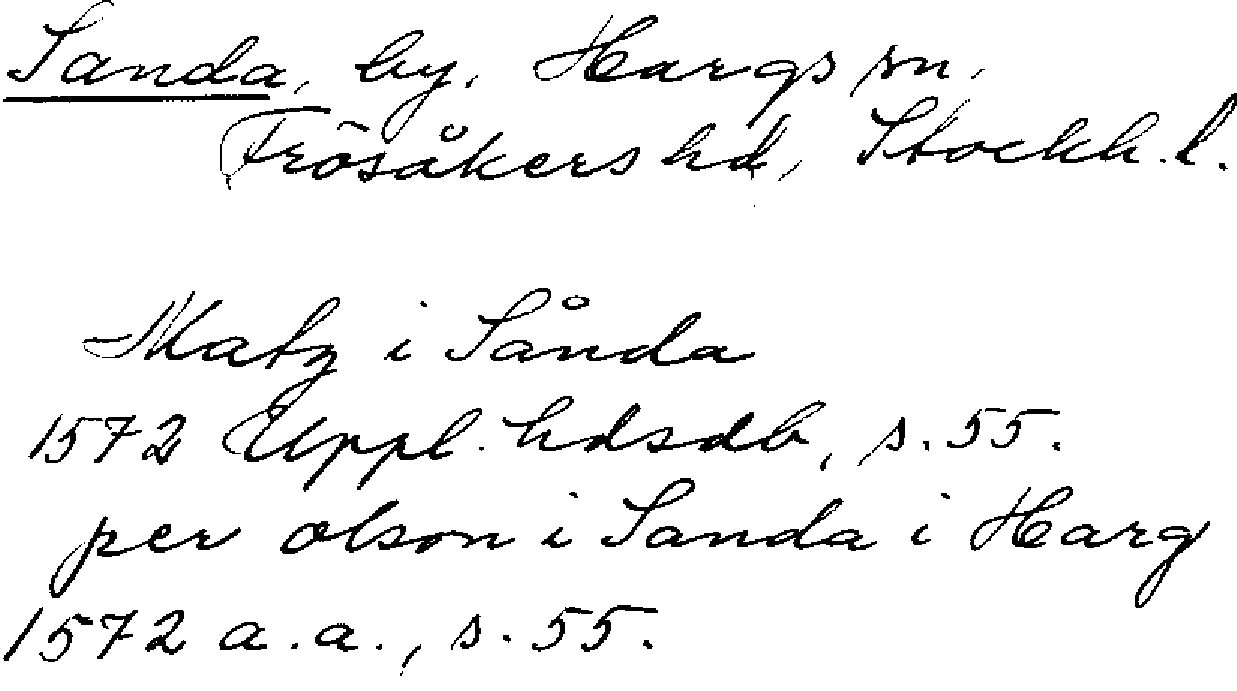 Sanda, by, Hargs sn,
Frösåkers hd, Stockh. l.
Matz i Sånda
1572 Uppl. hdsdb, s. 55.
per olson i Sanda i Harg
1572 a.a., s. 55.